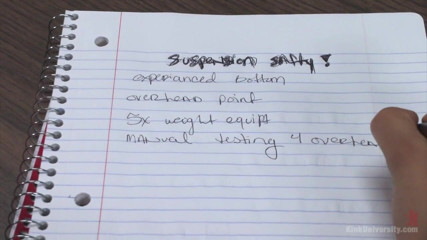 suspension safty!
experianced bottom
overhead point
5x weight equipt
manual testing 4 overhea
KinkUniversity.com